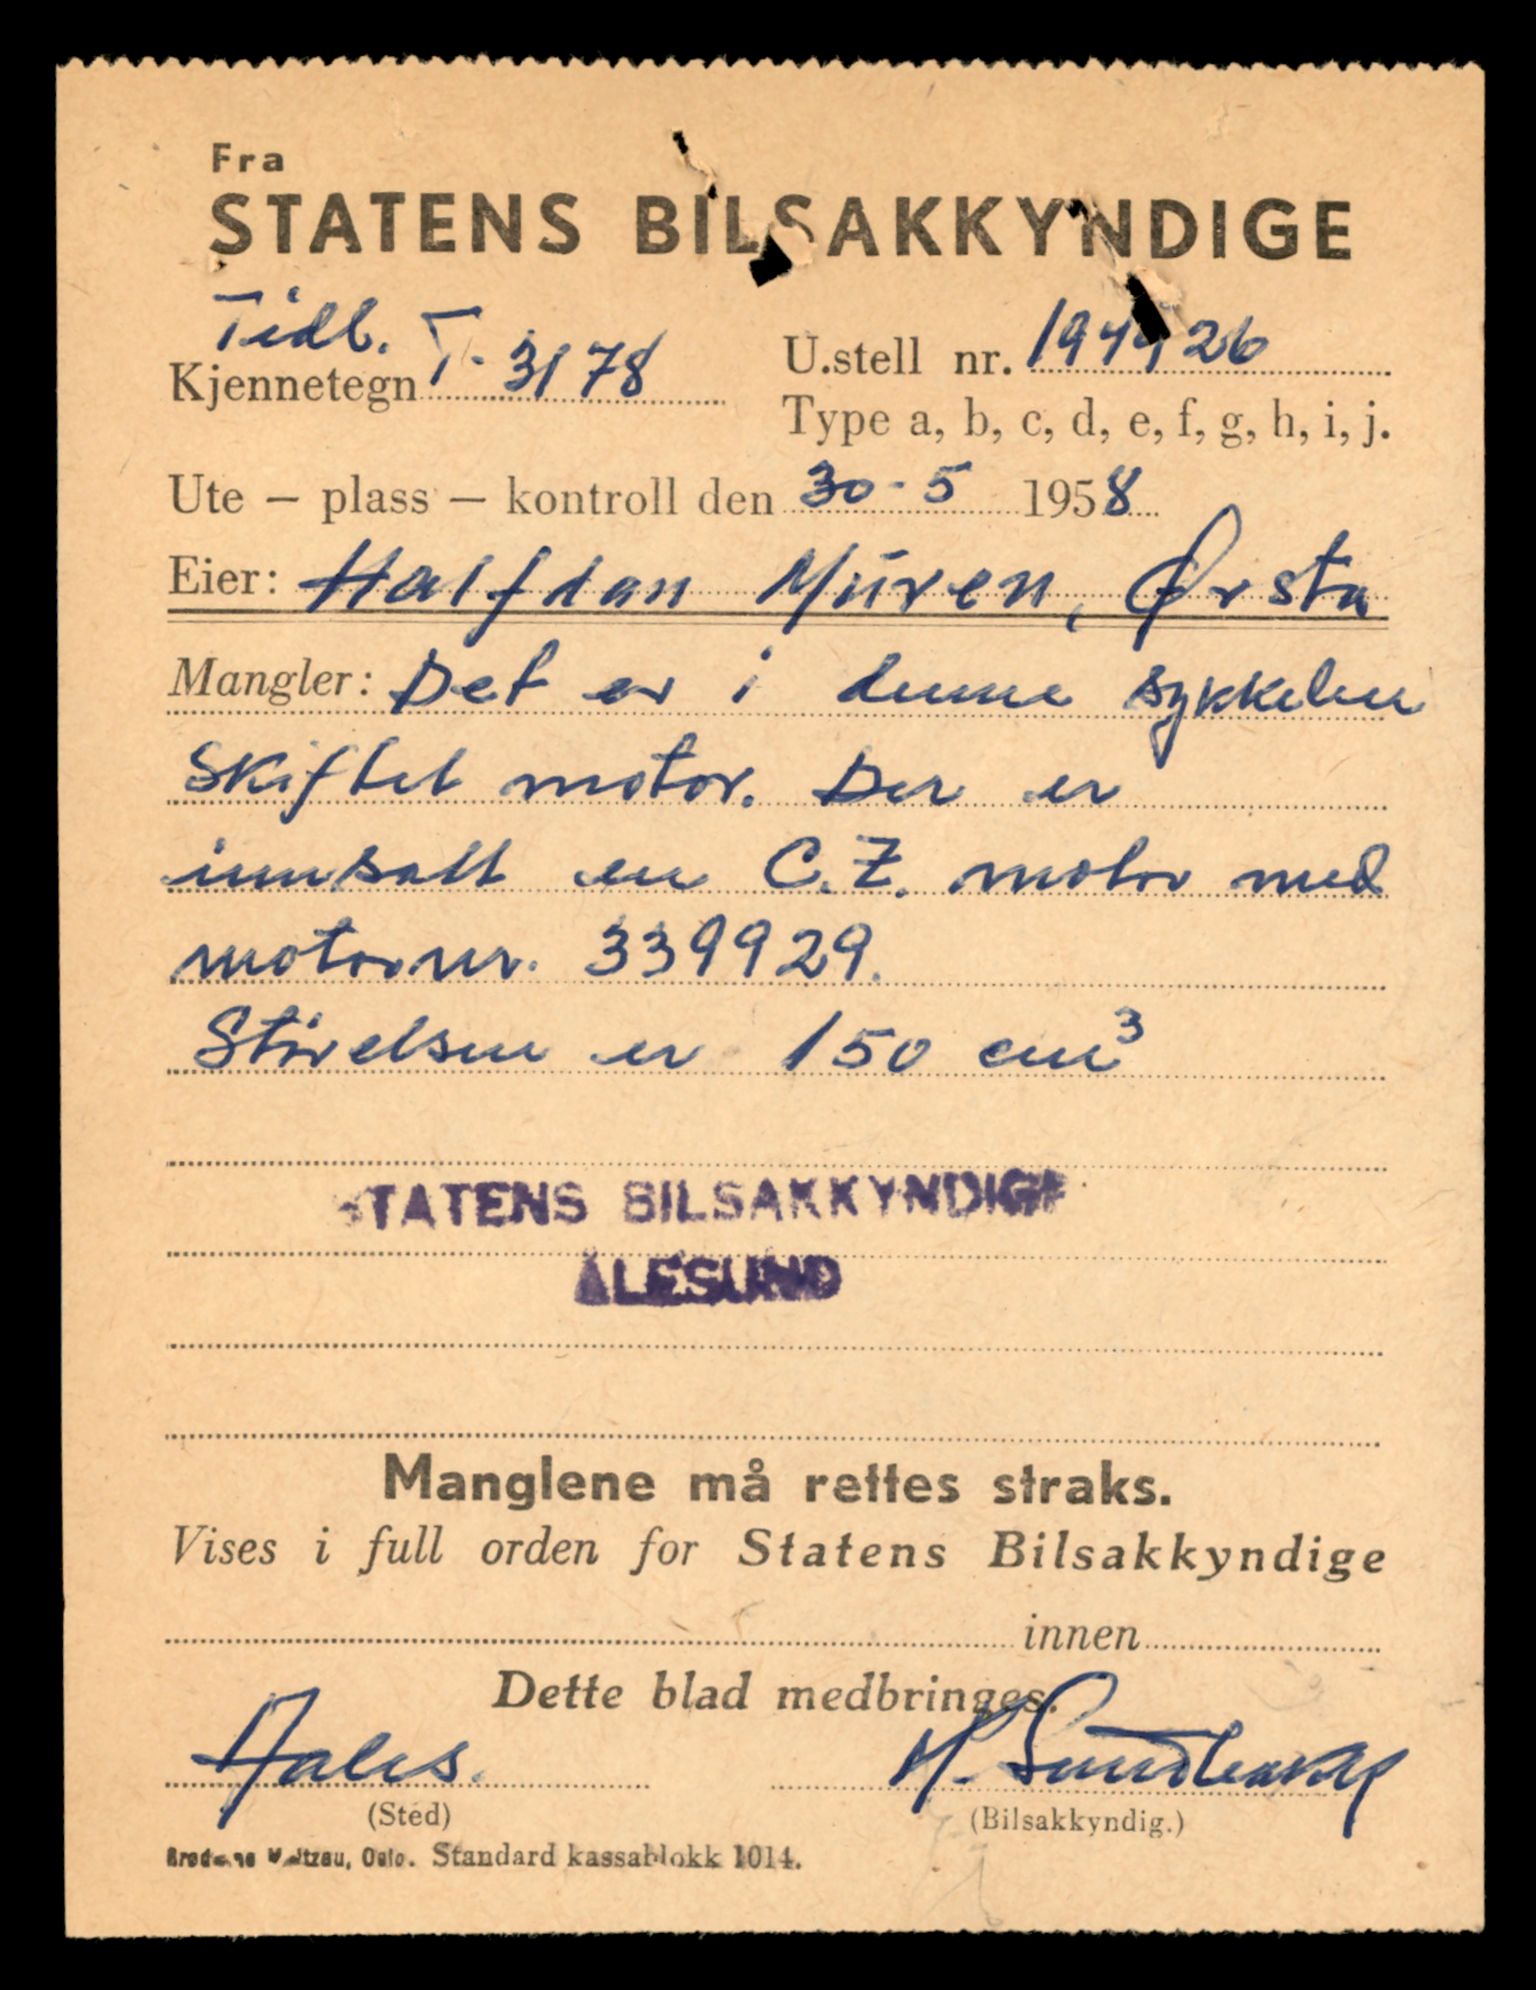 Fra
STATENS BILSAKKYNDIGE
Tidl.
Kjennetegn T-3178
U.stell nr. 194926
Type a, b, c, d, e, f, g, h, i, j.
Ute – plass – kontroll den 30-5 1958
Eier: Halfdan Müren, Ørsta
Mangler: Det er i denne sykkelen
skiftet motor. Der er
innsatt en C.Z. motor med
motornr. 339929.
Størelsen er 150 cm³
STATENS BILSAKKYNDIGE
ÅLESUND
Manglene må rettes straks.
Vises i full orden for Statens Bilsakkyndige
innen
Dette blad medbringes.
Aales.
H.
(Sted)
(Bilsakkyndig.)
Oslo. Standard kassablokk 1014.